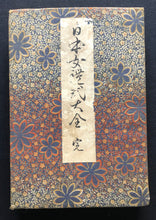 日本女禮式大全 完